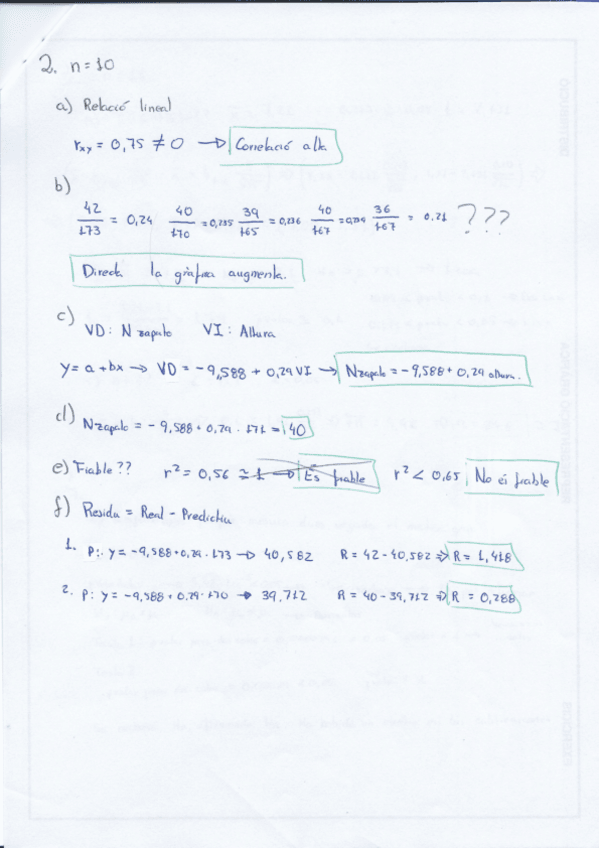 2. n=10
a) Relació lineal
rxy = 0,75 ≠ 0 → Correlació alta
b)
42/173 = 0,24 40/170 = 0,235 39/165 = 0,236 40/167 = 0,239 36/167 = 0.21 ???
Directa la gràfica augmenta.
c)
VD: N zapato VI: Altura
y = a + bx → VD = -9,588 + 0,29 VI → N zapato = -9,588 + 0,29 altura.
d)
N zapato = -9,588 + 0,29 · 171 = 40
e) Fiable?? r² = 0,56 ≃ 1 → És fiable r² < 0,65 No és fiable
f) Residu = Real - Predictiu
1. P: y = -9,588 + 0,29 · 173 → 40,582 R = 42 - 40,582 ⇒ R = 1,418
2. P: y = -9,588 + 0.29 · 170 → 39,712 R = 40 - 39,712 ⇒ R = 0,288